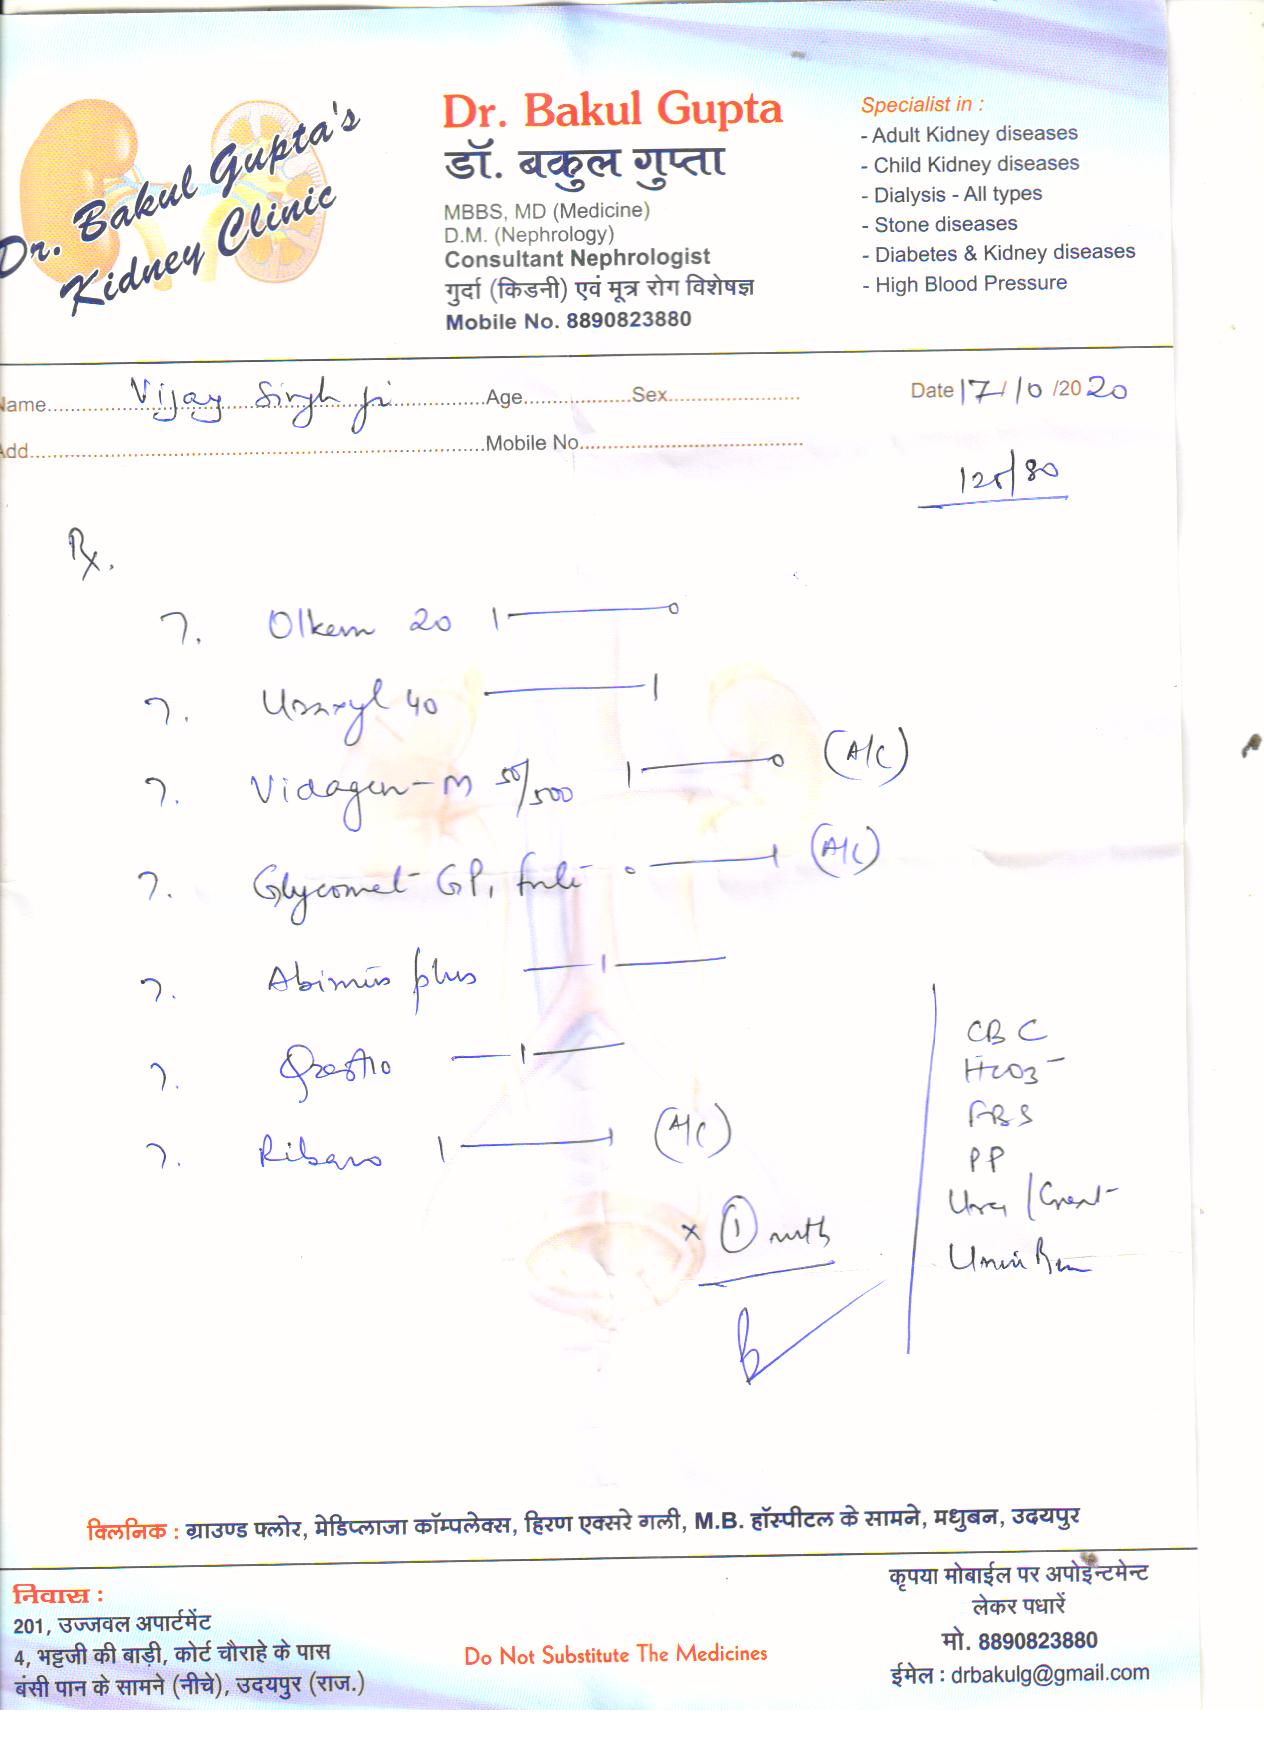 Dr. Bakul Gupta's
Kidney Clinic
Dr. Bakul Gupta
डॉ. बकुल गुप्ता
MBBS, MD (Medicine)
D.M. (Nephrology)
Consultant Nephrologist
गुर्दा (किडनी) एवं मूत्र रोग विशेषज्ञ
Mobile No. 8890823880
Specialist in :
- Adult Kidney diseases
- Child Kidney diseases
- Dialysis - All types
- Stone diseases
- Diabetes & Kidney diseases
- High Blood Pressure
ame Vijay Singh ji Age Sex Date 17/10/2020
Add Mobile No.
125/80
Rx.
T. Olkem 20 1 — 0
T. 40 — 1
T. Vidagen-M 50/500 1 — 0 (A/C)
T. Glycomet GP1 forte 0 — 1 (A/C)
T. Abimus plus — 1 —
T. — 1 —
T. 1 — 1 (A/C)
x 1 mth
CBC
HCO3-
FBS
PP
Urea / Creat
क्लिनिक : ग्राउण्ड फ्लोर, मेडिप्लाजा कॉम्पलेक्स, हिरण एक्सरे गली, M.B. हॉस्पीटल के सामने, मधुबन, उदयपुर
निवास :
201, उज्जवल अपार्टमेंट
4, भट्टजी की बाड़ी, कोर्ट चौराहे के पास
बंसी पान के सामने (नीचे), उदयपुर (राज.)
Do Not Substitute The Medicines
कृपया मोबाईल पर अपोइन्टमेन्ट
लेकर पधारें
मो. 8890823880
ईमेल : drbakulg@gmail.com